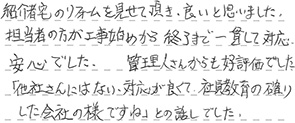 紹介宅のリフォームを見せて頂き、良いと思いました。
担当者の方が工事始めから終了まで一貫して対応
安心でした。 管理人さんからも好評価でした
「他社さんにはない対応が良くて 社員教育の確り
した会社の様ですね」との話しでした。